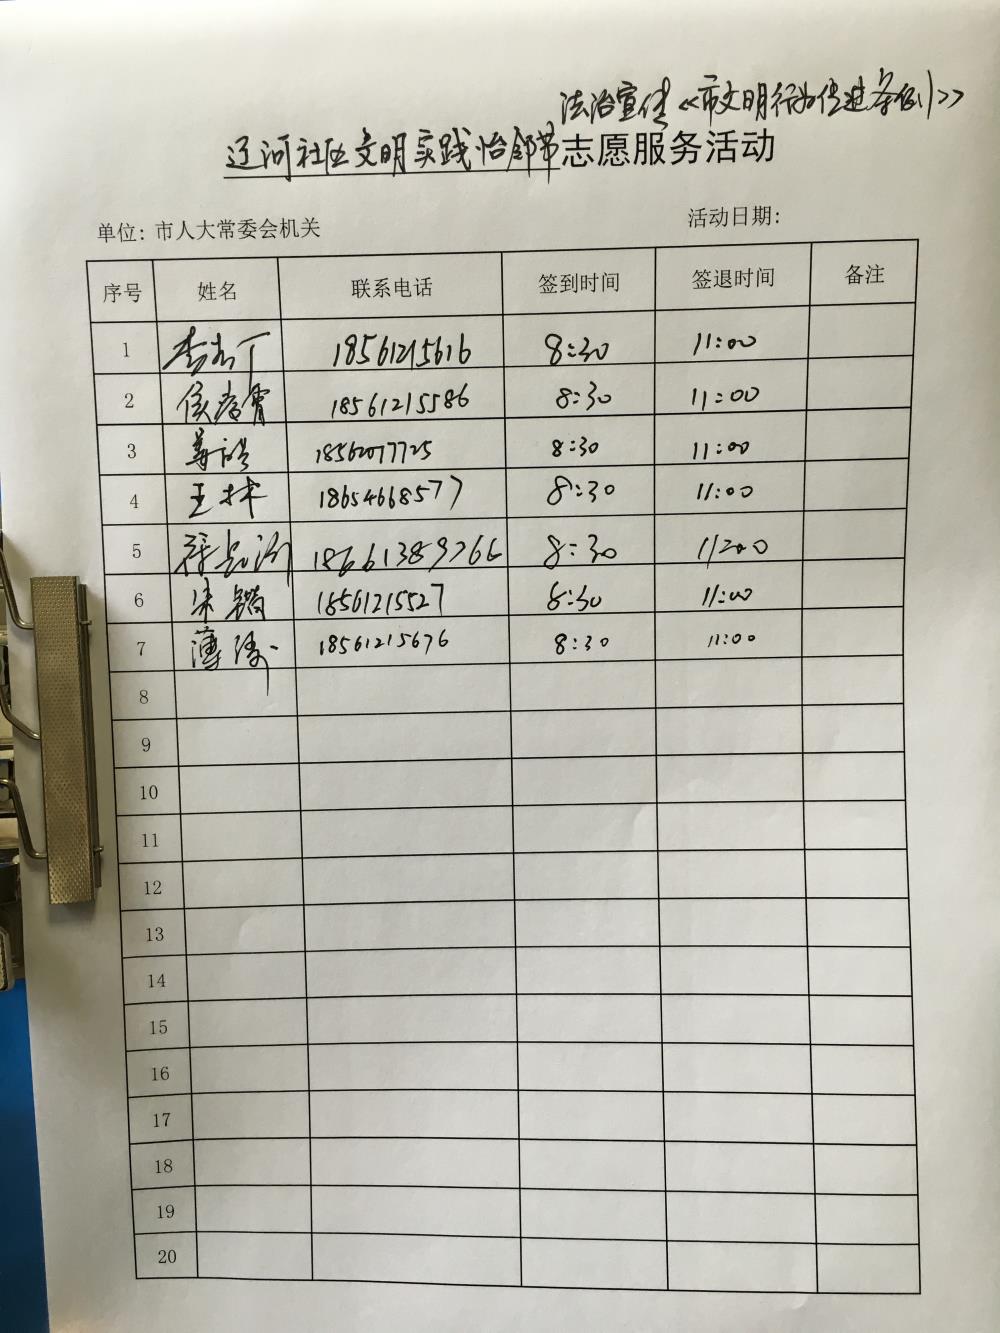 法治宣传《市文明行为促进条例》
辽河社区文明实践怡邻节志愿服务活动
单位：市人大常委会机关 活动日期：
序号 姓名 联系电话 签到时间 签退时间 备注
1 18561215616 8:30 11:00
2 18561215586 8:30 11:00
3 18562077725 8:30 11:00
4 王林 18654668577 8:30 11:00
5 18661389766 8:30 11:00
6 18561215527 8:30 11:00
7 薄 18561215676 8:30 11:00
8
9
10
11
12
13
14
15
16
17
18
19
20